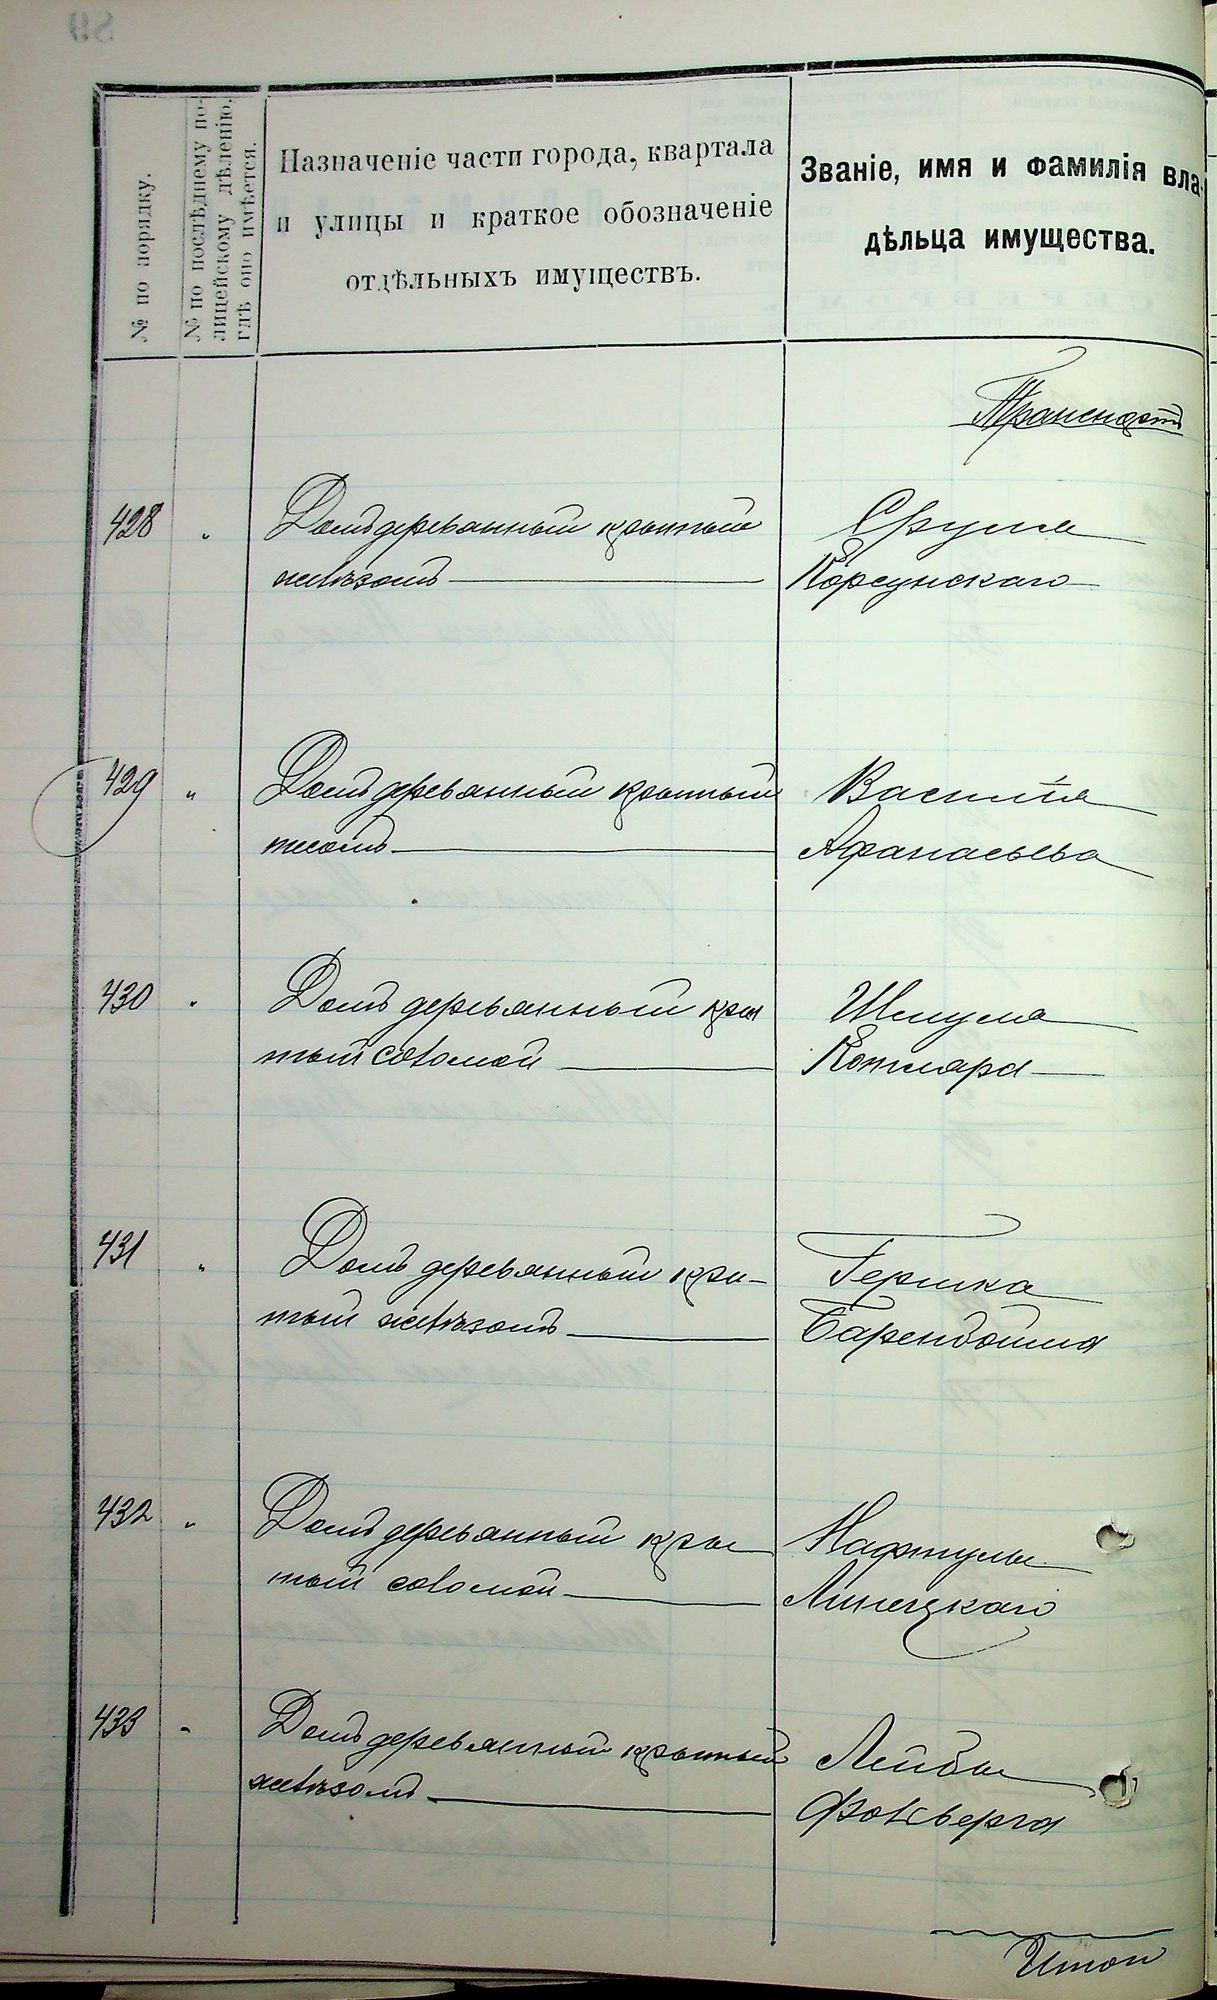 № по порядку.
№ по послѣднему по-
лицейскому дѣленію,
гдѣ оно имѣется.
Назначеніе части города, квартала
и улицы и краткое обозначеніе
отдѣльныхъ имуществъ.
Званіе, имя и фамилія вла-
дѣльца имущества.
Транспортъ
428 " Домъ деревянный крытый Сруля
желѣзомъ Корсунскаго
429 " Домъ деревянный крытый Василія
тесомъ Афанасьева
430 " Домъ деревянный кры Шмуля
тый соломой Котляра
431 " Домъ деревянный кры- Гершка
тый желѣзомъ Баренбойма
432 " Домъ деревянный кры Нафтулы
тый соломой Линецкаго
433 " Домъ деревянный крытый Лейбы
желѣзомъ
Итого